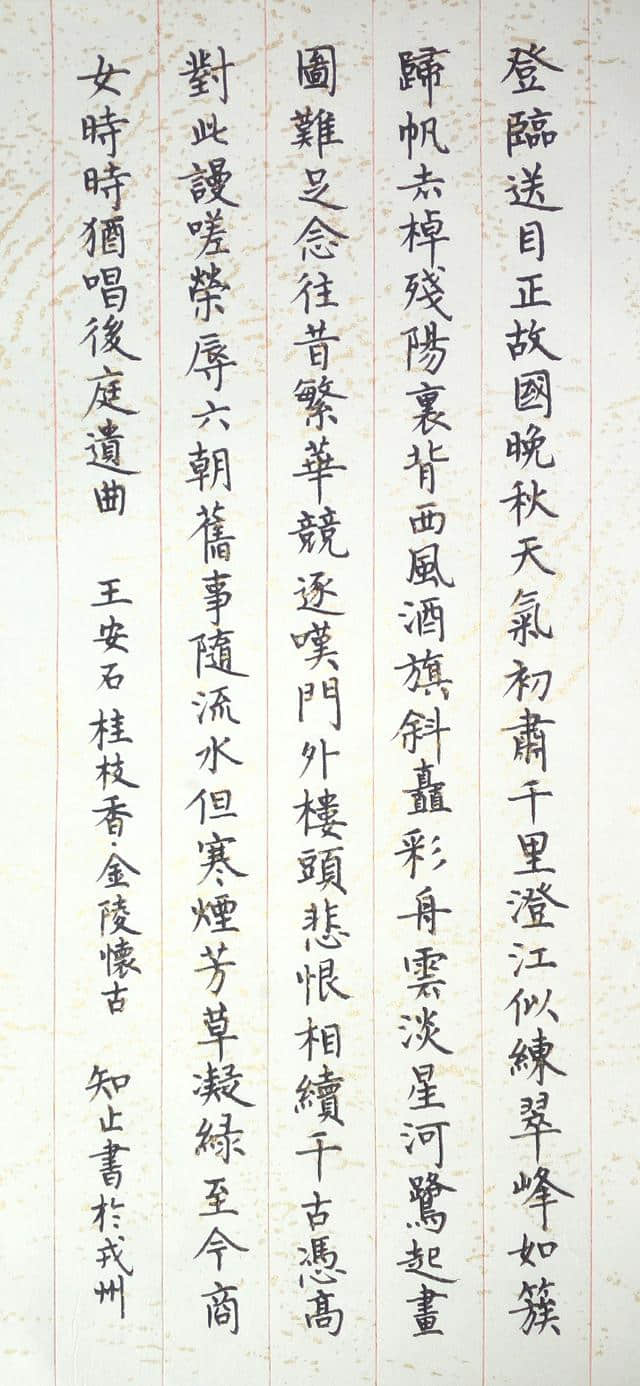 登臨送目正故國晚秋天氣初肅千里澄江似練翠峰如簇
歸帆去棹殘陽裏背西風酒旗斜矗彩舟雲淡星河鷺起畫
圖難足念往昔繁華競逐嘆門外樓頭悲恨相續千古憑高
對此謾嗟榮辱六朝舊事隨流水但寒煙芳草凝綠至今商
女時時猶唱後庭遺曲 王安石桂枝香·金陵懷古 知止書於戎州